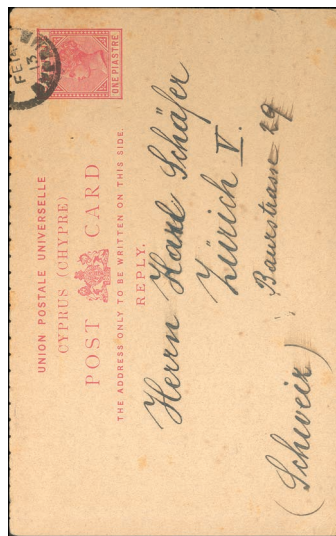 UNION POSTALE UNIVERSELLE
CYPRUS (CHYPRE)
POST CARD
THE ADDRESS ONLY TO BE WRITTEN ON THIS SIDE.
REPLY.
ONE PIASTRE
FE 14
13
Herrn Karl Schäfer
Zürich V.
Baurstrasse 29
(Schweiz)